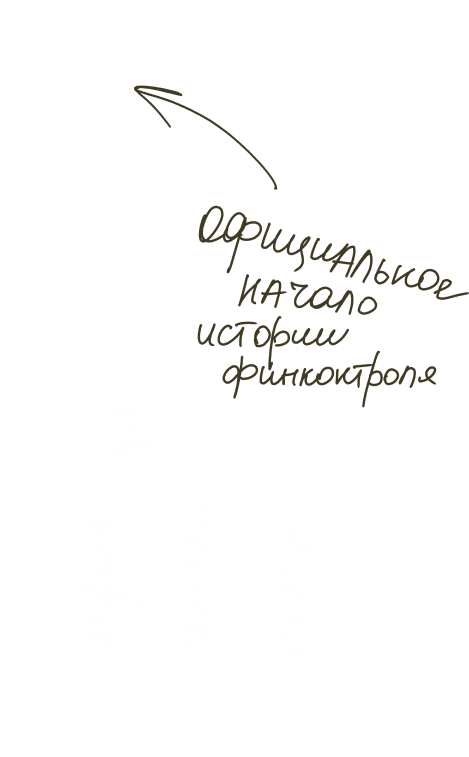 Официальное
начало
истории
финконтроля